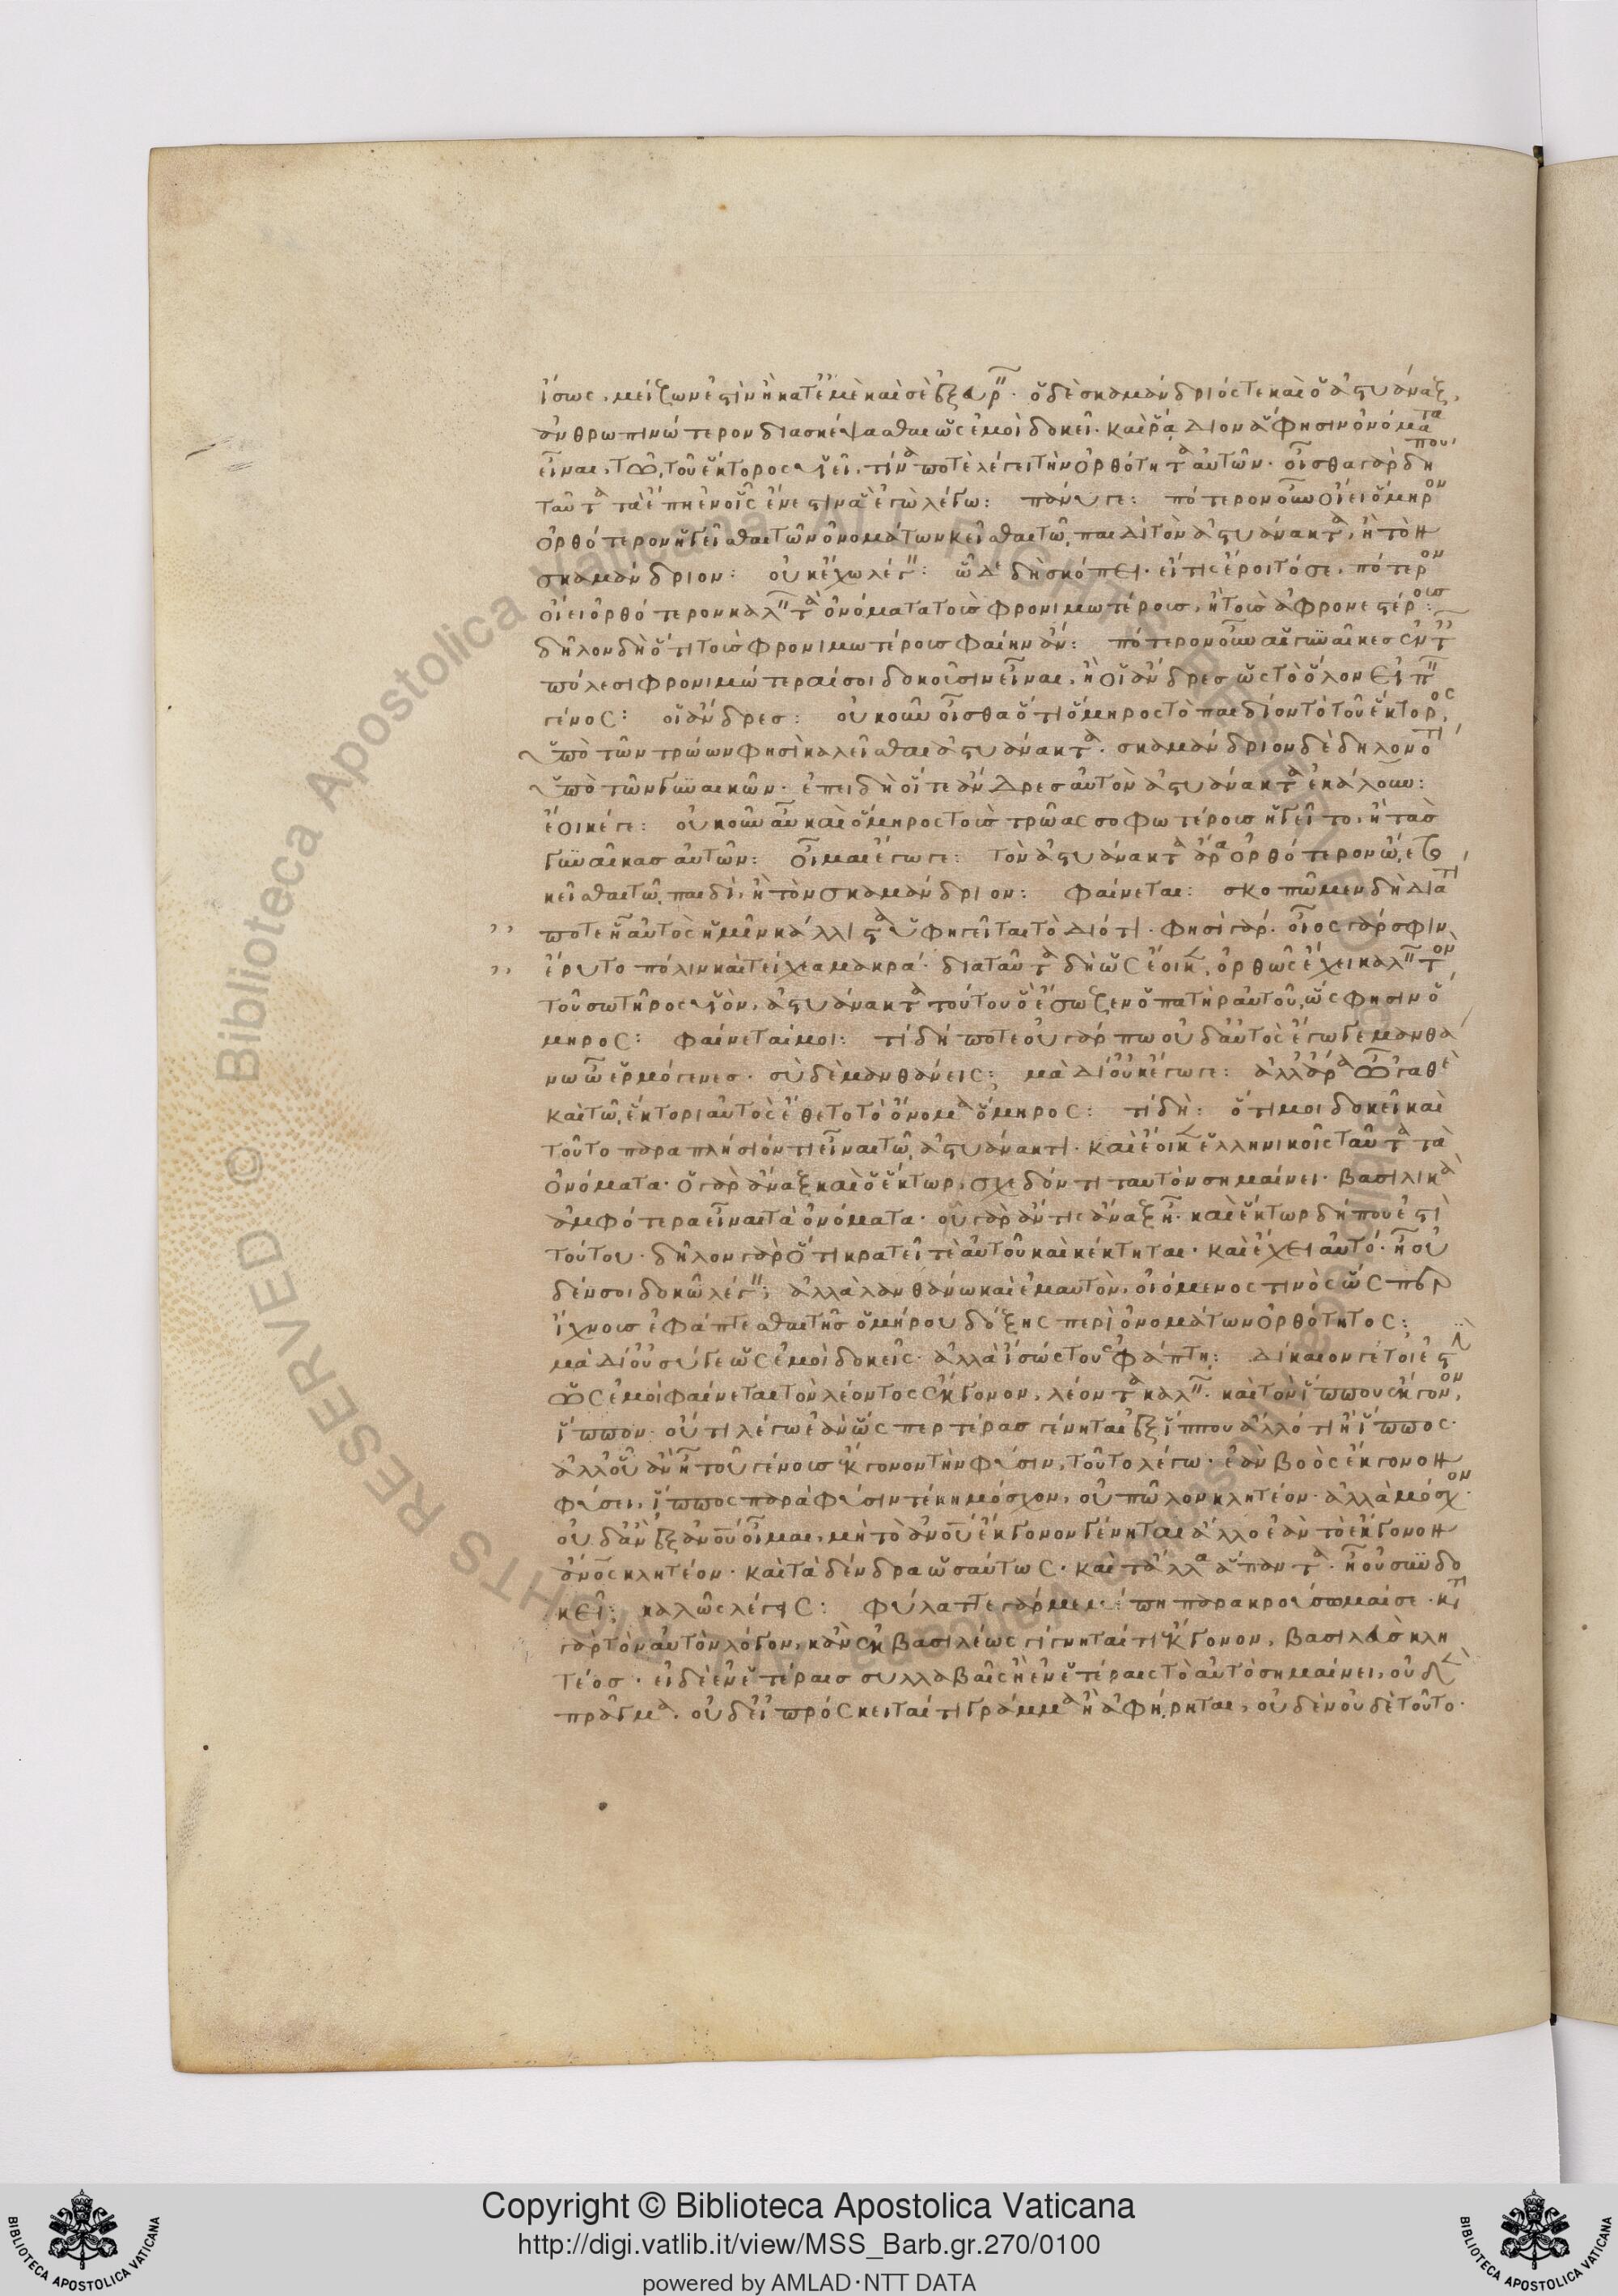 ἴσως, μείζω ἐστὶν ἢ κατ' ἐμὲ καὶ σὲ ἐξευρ. ὁ δὲ σκαμάνδριός τε καὶ ὁ ἀστυάναξ,
ἀνθρωπινώτερον διασκέψασθαι ὡς ἐμοὶ δοκεῖ. καὶ ῥᾴδιον ἅ φησιν ὀνόματα
εἶναι, τῷ τοῦ ἕκτορος υἱεῖ, τίνα ποτὲ λέγει τὴν ὀρθότητα αὐτῶν. οἶσθα γὰρ δήπου
ταῦτα τὰ ἔπη ἐν οἷς ἔνεστιν ἃ ἐγὼ λέγω: πάνυ γε: πότερον οὖν οἴει ὅμηρον
ὀρθότερον ἡγεῖσθαι τῶν ὀνομάτων κεῖσθαι τῷ παιδὶ τὸν ἀστυάνακτα, ἢ τὸν
σκαμάνδριον: οὐκ ἔχω λέγ: ὧδε δὴ σκόπει. εἴ τις ἔροιτό σε, πότερον
οἴει ὀρθότερον καλ τὰ ὀνόματα τοὺς φρονιμωτέρους, ἢ τοὺς ἀφρονεστέρους:
δῆλον δὴ ὅτι τοὺς φρονιμωτέρους φαίην ἄν: πότερον οὖν αἱ γυναῖκες ἐν τ
πόλεσι φρονιμώτεραί σοι δοκοῦσιν εἶναι, ἢ οἱ ἄνδρες ὡς τὸ ὅλον εἰπ
γένος: οἱ ἄνδρες: οὐκοῦν οἶσθα ὅτι ὅμηρος τὸ παιδίον τὸ τοῦ ἕκτορος,
ὑπὸ τῶν τρώων φησὶ καλεῖσθαι ἀστυάνακτα. σκαμάνδριον δὲ δηλονότι
ὑπὸ τῶν γυναικῶν. ἐπειδὴ οἵ γε ἄνδρες αὐτὸν ἀστυάνακτα ἐκάλουν:
ἔοικέ γε: οὐκοῦν αὖ καὶ ὅμηρος τοὺς τρῶας σοφωτέρους ἡγεῖτο, ἢ τὰς
γυναῖκας αὐτῶν: οἶμαι ἔγωγε: τὸν ἀστυάνακτα ἄρα ὀρθότερον ᾤετο
κεῖσθαι τῷ παιδί, ἢ τὸν σκαμάνδριον: φαίνεται: σκοπῶμεν δὴ διατί
ποτε ἢ αὐτὸς ἡμῖν κάλλιστα ὑφηγεῖται τὸ διότι. φησὶ γάρ. οἶος γάρ σφιν
ἔρυτο πόλιν καὶ τείχεα μακρά. διὰ ταῦτα δὴ ὡς ἔοικ, ὀρθῶς ἔχει καλ τὸν
τοῦ σωτῆρος υἱὸν, ἀστυάνακτα τούτου ὃ ἔσωζεν ὁ πατὴρ αὐτοῦ, ὥς φησιν ὅ
μηρος: φαίνεταί μοι: τί δή ποτε οὐ γάρ πω οὐδ' αὐτὸς ἔγωγε μανθά
νω ὦ ἑρμόγενες. σὺ δὲ μανθάνεις: μὰ Δί' οὐκ ἔγωγε: ἀλλ' ἄρα ὦγαθὲ
καὶ τῷ ἕκτορι αὐτὸς ἔθετο τὸ ὄνομα ὅμηρος: τί δὴ: ὅτι μοι δοκεῖ καὶ
τοῦτο παραπλήσιόν τι εἶναι τῷ ἀστυάνακτι. καὶ ἔοικ ἑλληνικοῖς ταῦτα τὰ
ὀνόματα. ὁ γὰρ ἄναξ καὶ ὁ ἕκτωρ, σχεδόν τι ταυτὸν σημαίνει. βασιλικὰ
ἀμφότερα εἶναι τὰ ὀνόματα. οὗ γὰρ ἄν τις ἄναξ ᾖ. καὶ ἕκτωρ δήπου ἐστὶ
τούτου. δῆλον γὰρ ὅτι κρατεῖ τὲ αὐτοῦ καὶ κέκτηται. καὶ ἔχει αὐτό. ἢ οὐ
δέν σοι δοκῶ λέγ; ἀλλὰ λανθάνω καὶ ἐμαυτὸν, οἰόμενός τινος ὥσπερ
ἴχνους ἐφάπτεσθαι τῆς ὁμήρου δόξης περὶ ὀνομάτων ὀρθότητος:
μὰ Δί' οὐ σύ γε ὡς ἐμοὶ δοκεῖς. ἀλλὰ ἴσως του ἐφάπτῃ: δίκαιόν γέ τοι ἐστ
ὡς ἐμοὶ φαίνεται τὸν λέοντος ἔκγονον, λέοντα καλ. καὶ τὸν ἵππου ἔκγονον,
ἵππον. οὔτι λέγω ἐὰν ὥσπερ τέρας γένηται ἐξ ἵππου ἄλλό τι ἢ ἵππος.
ἀλλ' οὗ ἂν ᾖ τοῦ γένους ἔκγονον τὴν φύσιν, τοῦτο λέγω. ἐὰν βοὸς ἔκγονον
φύσει, ἵππος παρὰ φύσιν τέκῃ μόσχον, οὐ πῶλον κλητέον. ἀλλὰ μόσχον.
οὐδ' ἂν ἐξ ἀνοῦ οἶμαι, μὴ τὸ ἀνοῦ ἔκγονον γένηται ἄλλο ἐὰν τὸ ἔκγονον
ἄνος κλητέον. καὶ τὰ δένδρα ὡσαύτως. καὶ τἄλλα ἅπαντα. ἢ οὐ συνδο
κεῖ: καλῶς λέγεις: φύλαττε γάρ με μή πη παρακρούσωμαί σε. κτ
γὰρ τὸν αὐτὸν λόγον, κἂν ἐκ βασιλέως γίγνηταί τι ἔκγονον, βασιλεὺς κλη
τέος. εἰ δὲ ἐν ἑτέραις συλλαβαῖς ἢ ἐν ἑτέραις τὸ αὐτὸ σημαίνει, οὐδὲν
πρᾶγμα. οὐδ' εἰ πρόσκειταί τι γράμμα ἢ ἀφῄρηται, οὐδὲν οὐδὲ τοῦτο.
© Biblioteca Apostolica Vaticana ALL RIGHTS RESERVED
Copyright © Biblioteca Apostolica Vaticana
http://digi.vatlib.it/view/MSS_Barb.gr.270/0100
powered by AMLAD·NTT DATA
BIBLIOTECA APOSTOLICA VATICANA
BIBLIOTECA APOSTOLICA VATICANA